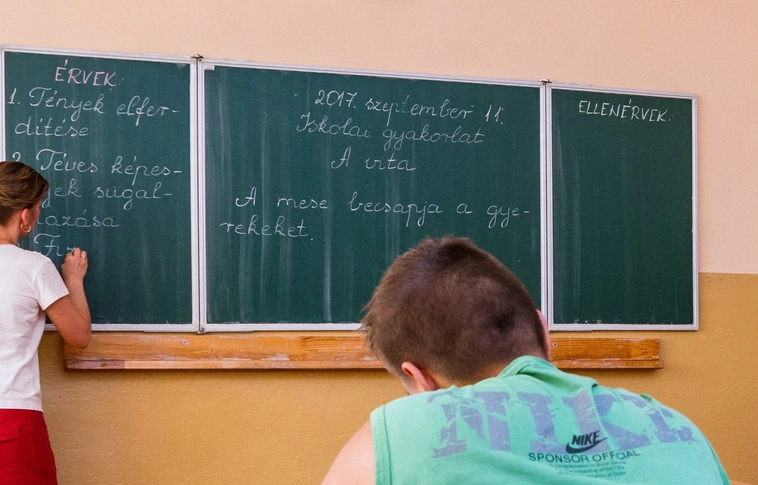 ÉRVEK:
1. Tények elfer-
dítése
2. Téves képes-
gek sugal-
lazása
2017. szeptember 11.
Iskolai gyakorlat
A vita
A mese becsapja a gye-
rekeket.
ELLENÉRVEK:
NIKE
NIKE
SPONSOR OFFICIAL